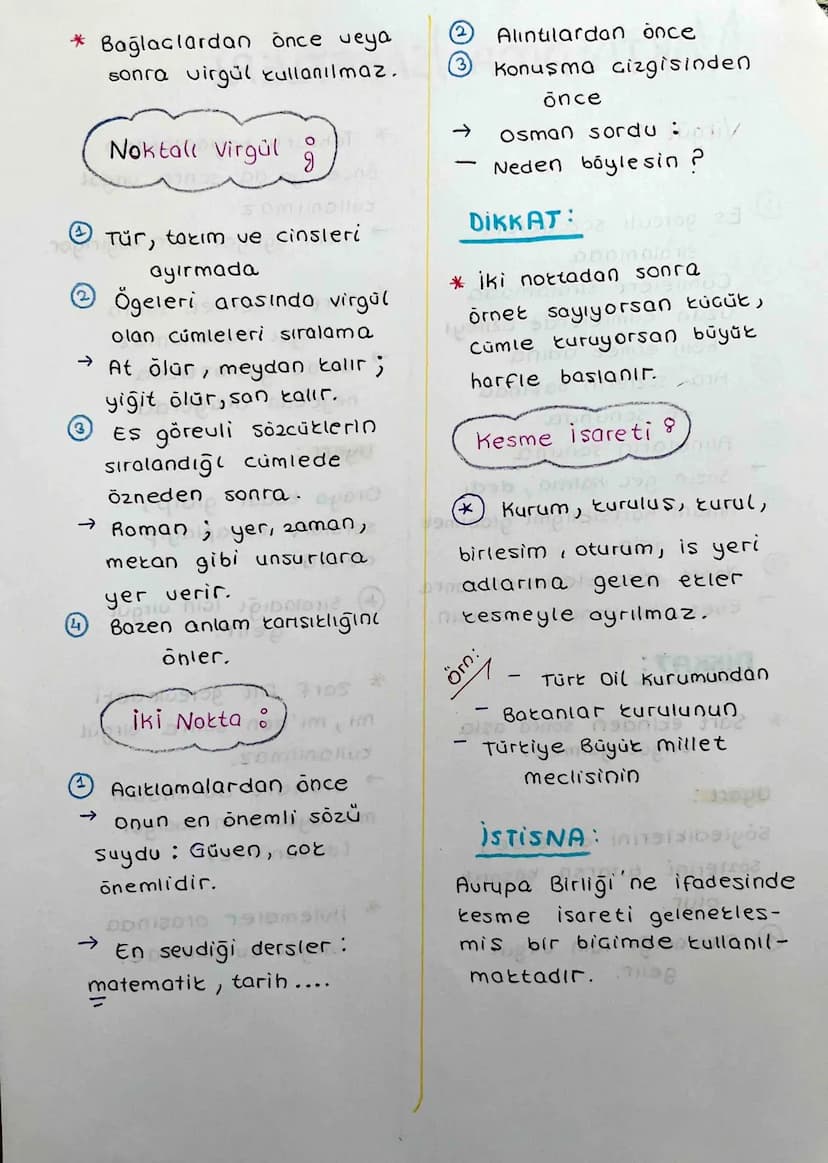 * Bağlaclardan önce veya
sonra virgül kullanılmaz.
Noktalı Virgül ;
1 Tür, takım ve cinsleri
ayırmada
2 Ögeleri arasında virgül
olan cümleleri sıralama
→ At ölür, meydan kalır ;
yiğit ölür, şan kalır.
3 Eş görevli sözcüklerin
sıralandığı cümlede
özneden sonra.
→ Roman ; yer, zaman,
mekan gibi unsurlara
yer verir.
4 Bazen anlam karışıklığını
önler.
İki Nokta :
1 Acıklamalardan önce
→ Onun en önemli sözü
şuydu : Güven, cok
önemlidir.
→ En sevdiği dersler :
matematik, tarih ....
2 Alıntılardan önce
3 Konuşma cizgisinden
önce
→ Osman sordu :
— Neden böylesin ?
DİKKAT :
* İki noktadan sonra
örnek sayıyorsan kücük,
cümle kuruyorsan büyük
harfle başlanır.
Kesme İşareti
* Kurum, kuruluş, kurul,
birleşim, oturum, iş yeri
adlarına gelen ekler
kesmeyle ayrılmaz.
Örn:
- Türk Dil Kurumundan
- Bakanlar kurulunun
- Türkiye Büyük millet
meclisinin
İSTİSNA :
Avrupa Birliği'ne ifadesinde
kesme işareti gelenekleş-
miş bir bicimde kullanıl-
maktadır.